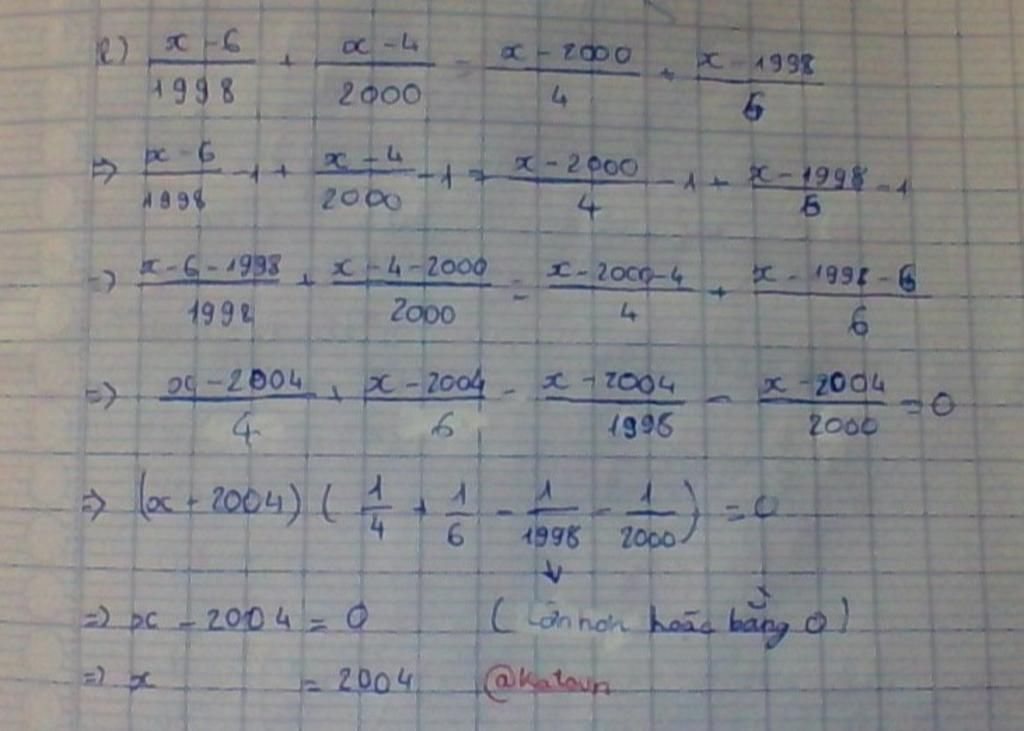 e) (x - 6)/1998 + (x - 4)/2000 = (x - 2000)/4 + (x - 1998)/6
=> (x - 6)/1998 - 1 + (x - 4)/2000 - 1 = (x - 2000)/4 - 1 + (x - 1998)/6 - 1
=> (x - 6 - 1998)/1998 + (x - 4 - 2000)/2000 = (x - 2000 - 4)/4 + (x - 1998 - 6)/6
=> (x - 2004)/4 + (x - 2004)/6 - (x - 2004)/1998 - (x - 2004)/2000 = 0
=> (x - 2004) (1/4 + 1/6 - 1/1998 - 1/2000) = 0
↓
=> x - 2004 = 0 (Lớn hơn hoặc bằng 0)
=> x = 2004 @Katoun